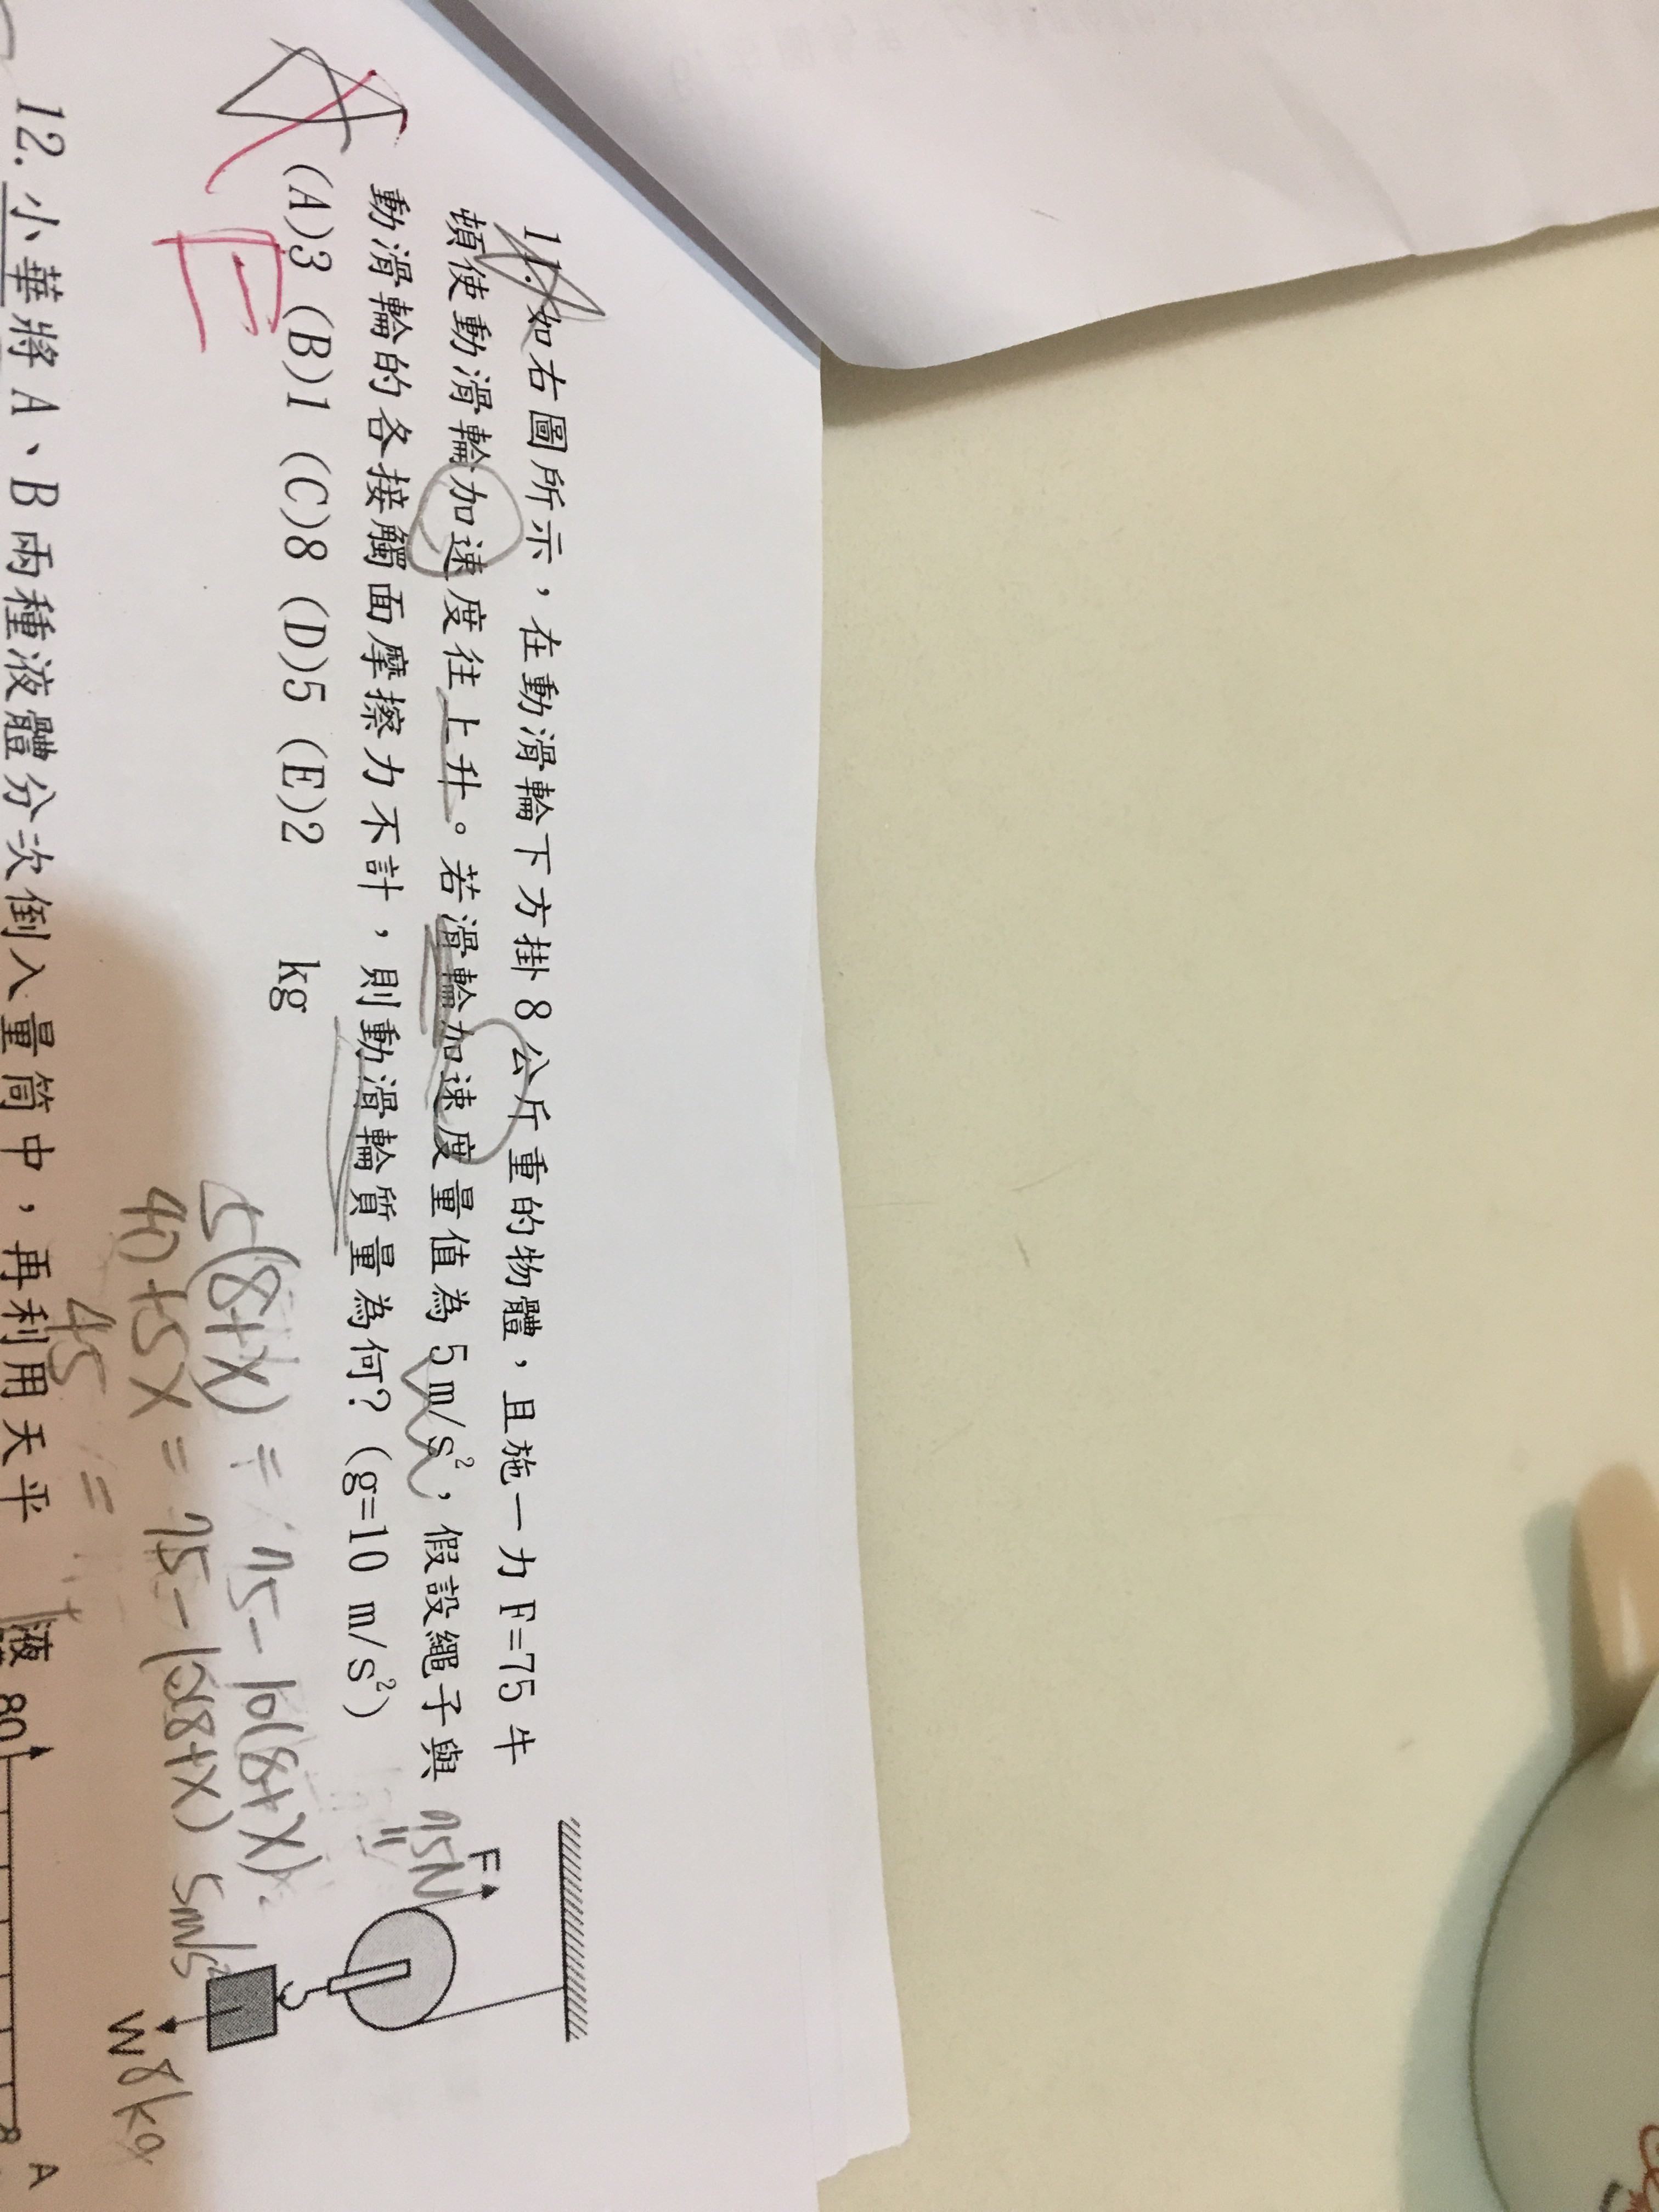 11.如右圖所示，在動滑輪下方掛8公斤重的物體，且施一力F=75牛
頓使動滑輪加速度往上升。若滑輪加速度量值為5m/s²，假設繩子與
動滑輪的各接觸面摩擦力不計，則動滑輪質量為何？(g=10 m/s²)
(A)3 (B)1 (C)8 (D)5 (E)2 kg
E
F
75N
=
W 8kg
5m/s²
5(8+X) = 75-10(8+X)
40+5X = 75-10(8+X)
45 =
12.小華將A、B兩種液體分次倒入量筒中，再利用天平
液
80
A
8